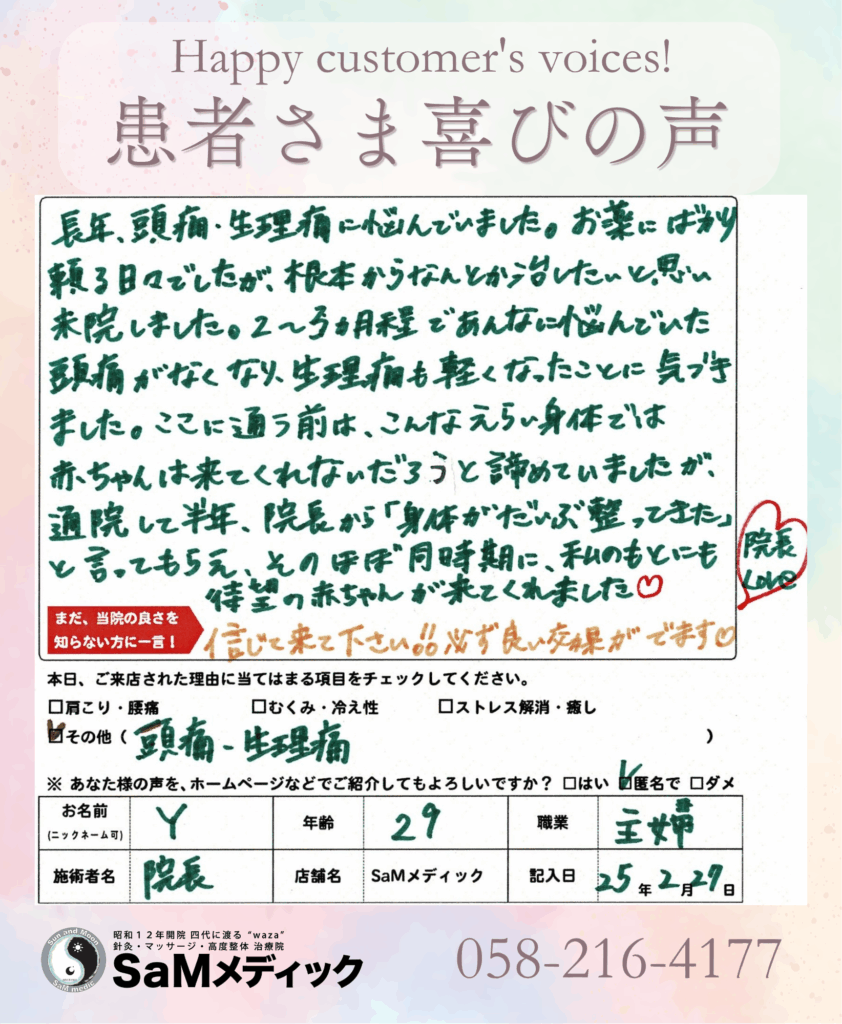 Happy customer's voices!
患者さま喜びの声
長年、頭痛・生理痛に悩んでいました。お薬にばかり
頼る日々でしたが、根本からなんとか治したいと思い
来院しました。2～3ヵ月程であんなに悩んでいた
頭痛がなくなり、生理痛も軽くなったことに気づき
ました。ここに通う前は、こんなえらい身体では
赤ちゃんは来てくれないだろうと諦めていましたが、
通院して半年、院長から「身体がだいぶ整ってきた」
と言ってもらえ、そのほぼ同時期に、私のもとにも
待望の赤ちゃんが来てくれました♡
院長
Love
まだ、当院の良さを
知らない方に一言！
信じて来て下さい!! 必ず良い効果がでます♡
本日、ご来店された理由に当てはまる項目をチェックしてください。
□肩こり・腰痛 □むくみ・冷え性 □ストレス解消・癒し
☑その他（頭痛・生理痛）
※ あなた様の声を、ホームページなどでご紹介してもよろしいですか？ □はい ☑匿名で □ダメ
お名前 (ニックネーム可) Y 年齢 29 職業 主婦
施術者名 院長 店舗名 SaMメディック 記入日 25年2月27日
Sun and Moon
SaM medic
昭和１２年開院 四代に渡る “waza”
針灸・マッサージ・高度整体 治療院
SaMメディック
058-216-4177